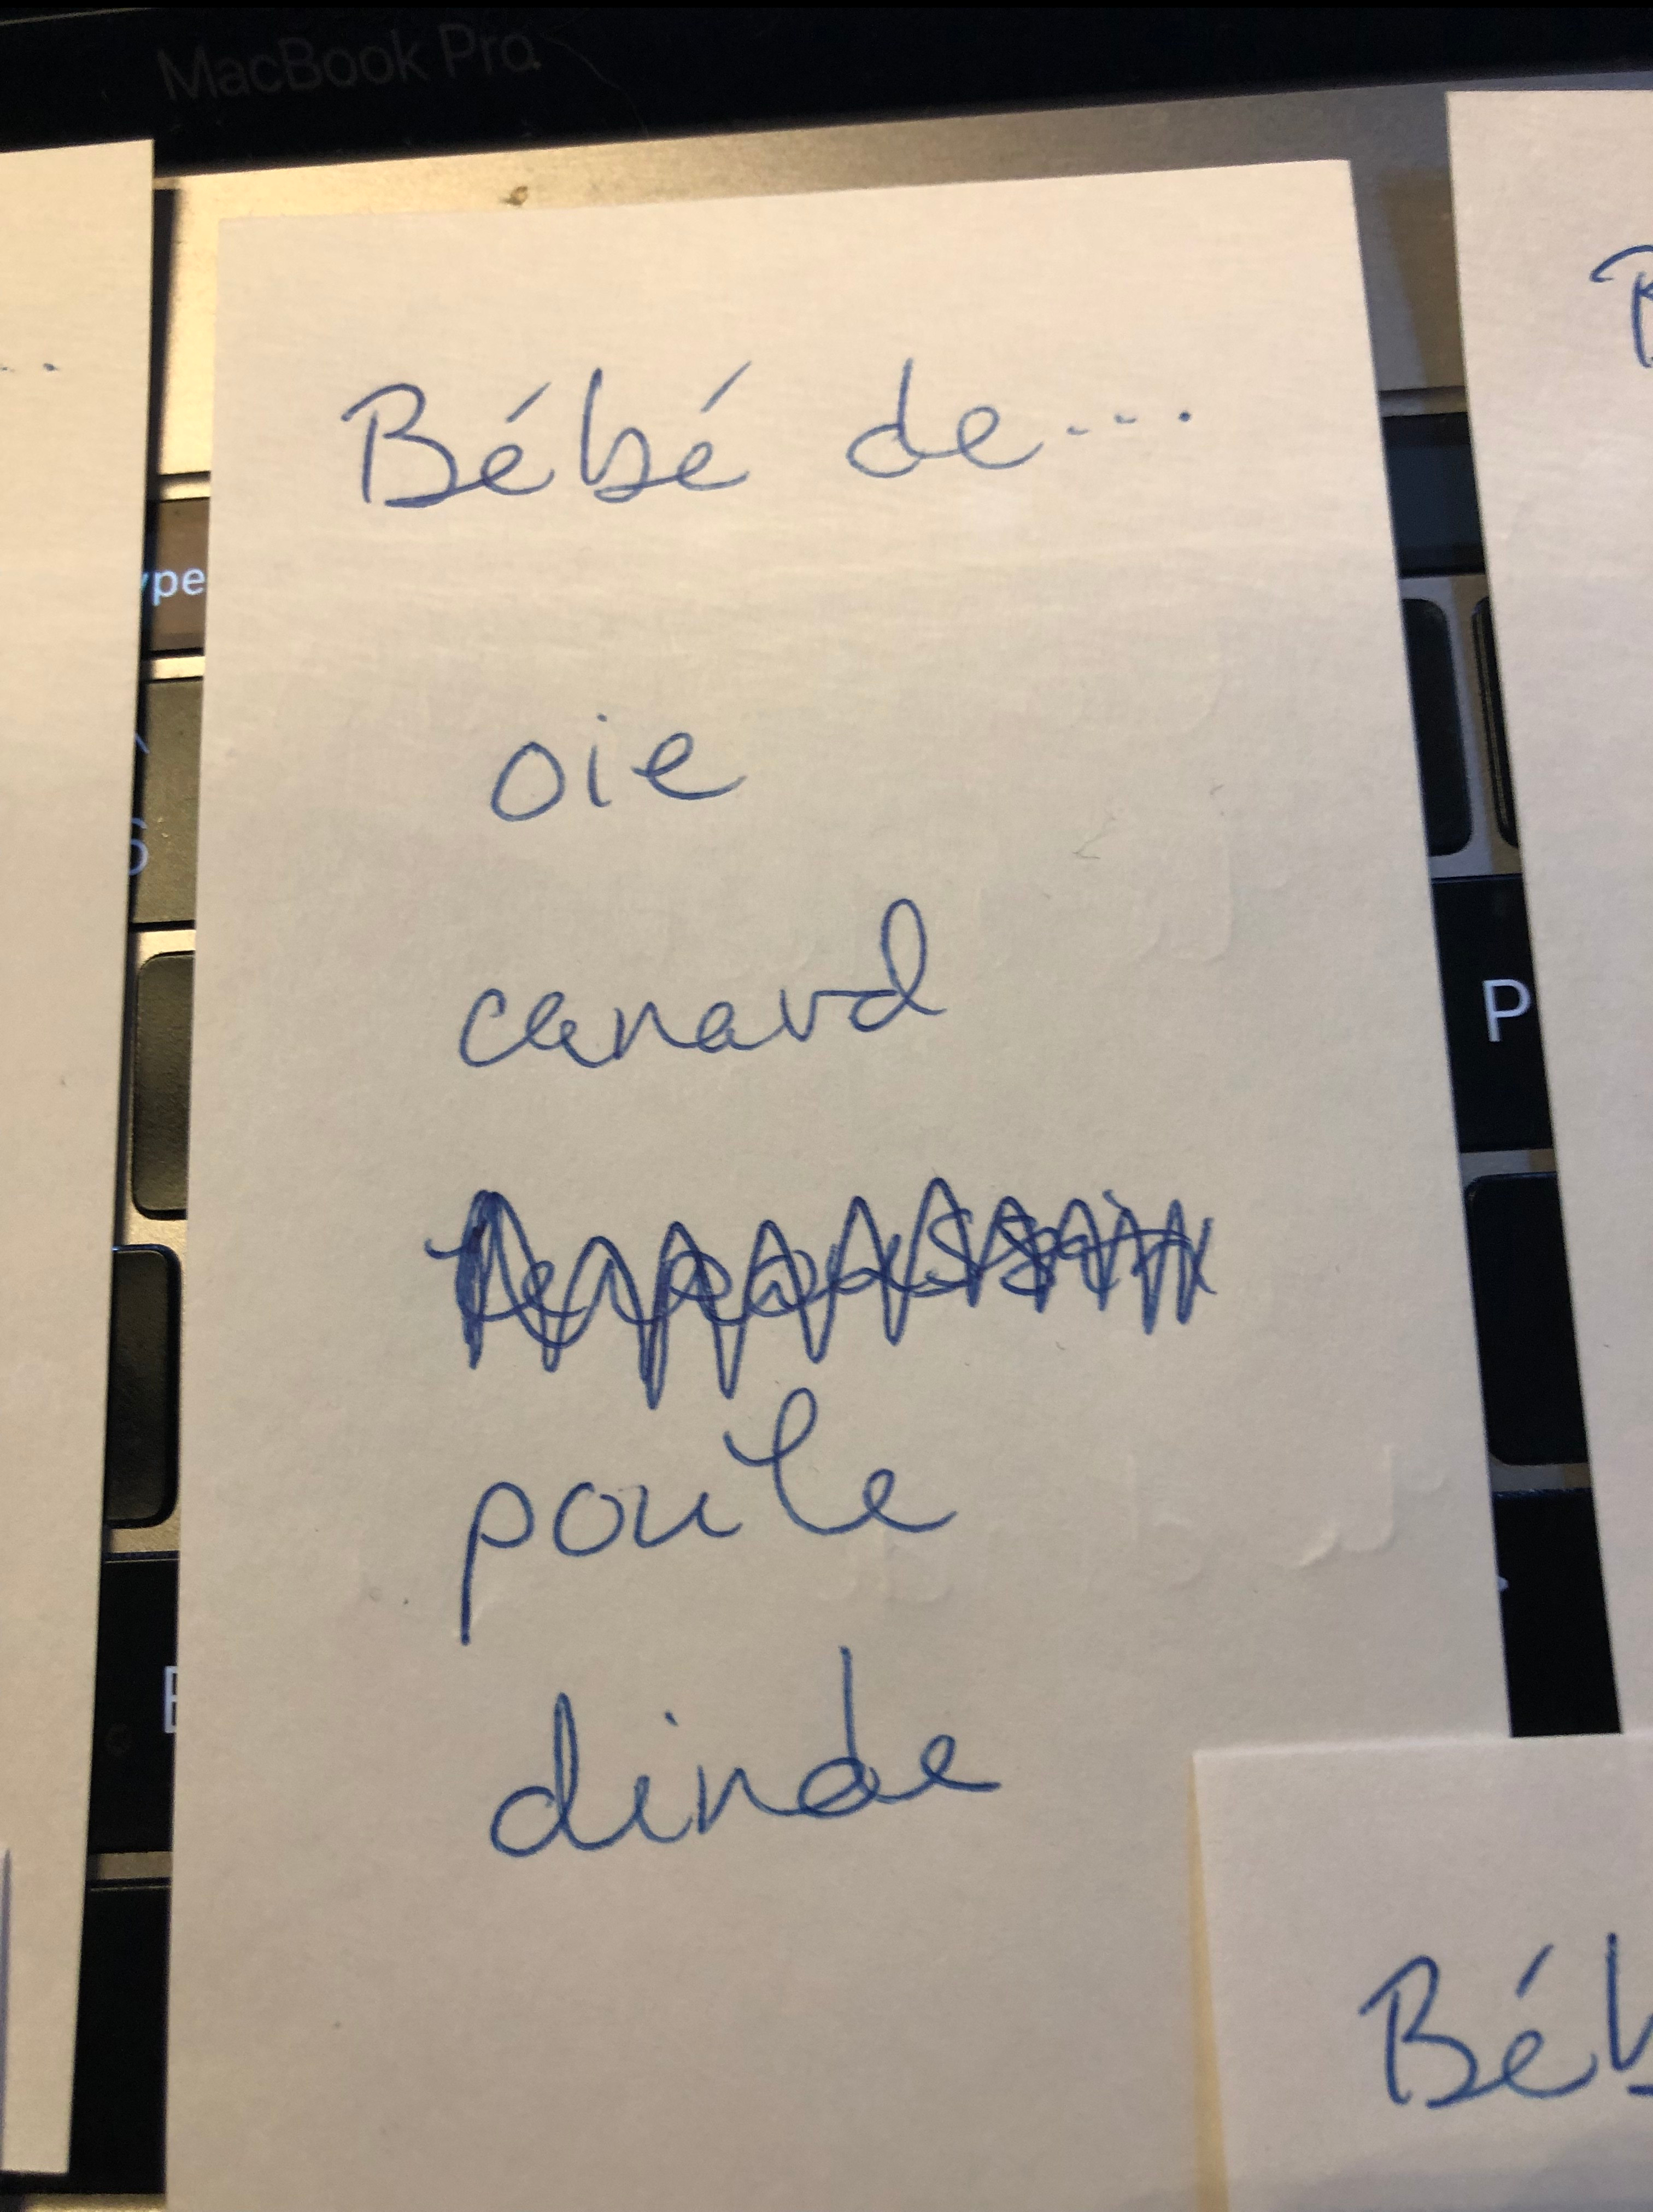 MacBook Pro
Bébé de...
oie
canard
poule
dinde
P
Béb